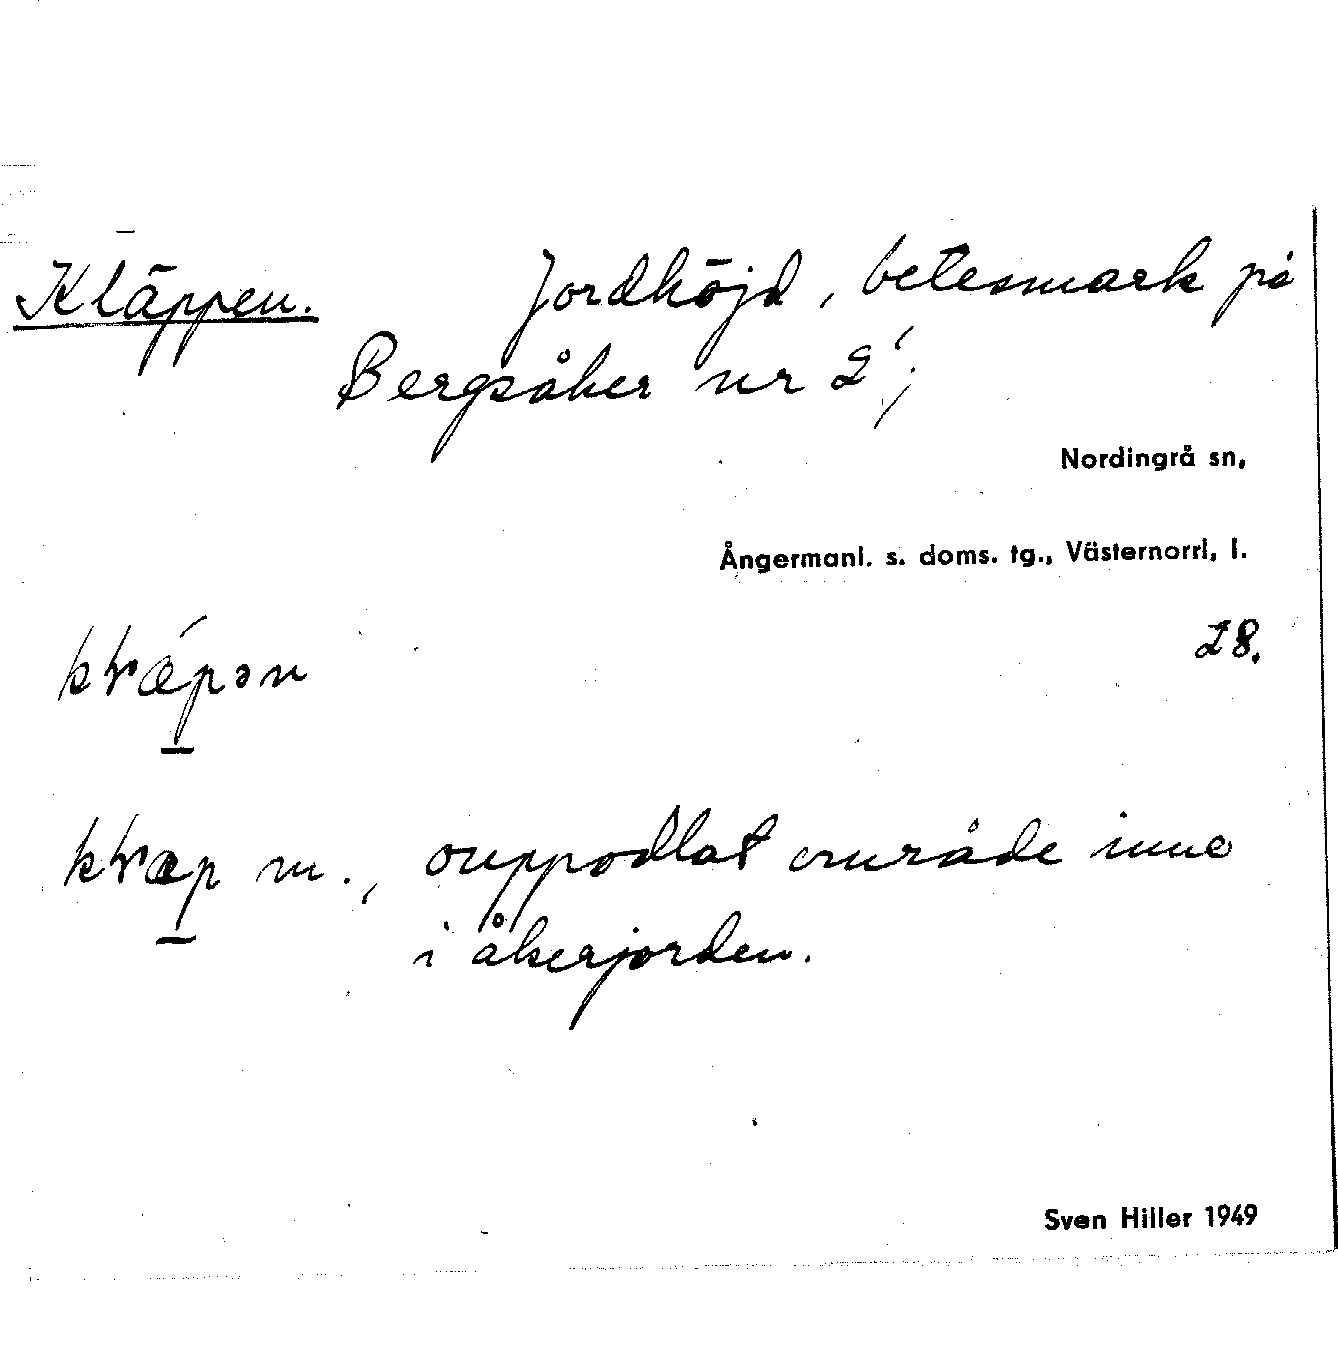 Kläppen. Jordhöjd, betesmark på
Bergsåker nr 2¹;
Nordingrå sn,
Ångermanl. s. doms. tg., Västernorrl, l.
28.
i åkerjorden.
m., ouppodlat område inne
Sven Hiller 1949